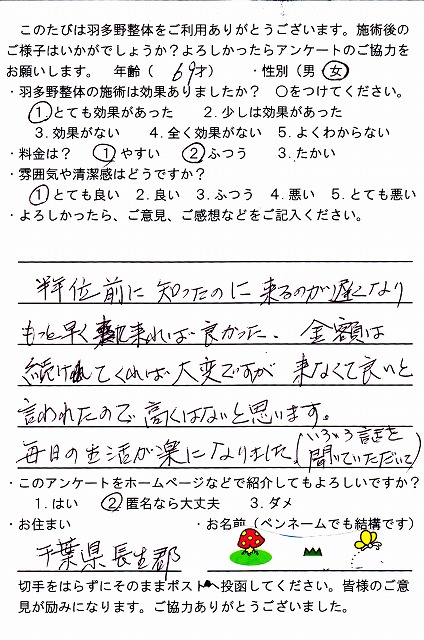 このたびは羽多野整体をご利用ありがとうございます。施術後の
ご様子はいかがでしょうか？よろしかったらアンケートのご協力を
お願いします。 年齢（ 69才） ・性別（男 女）
・羽多野整体の施術は効果ありましたか？ ○をつけてください。
1.とても効果があった 2.少しは効果があった
3.効果がない 4.全く効果がない 5.よくわからない
・料金は？ 1.やすい 2.ふつう 3.たかい
・雰囲気や清潔感はどうですか？
1.とても良い 2.良い 3.ふつう 4.悪い 5.とても悪い
・よろしかったら、ご意見、ご感想などをご記入ください。
半年位前に知ったのに来るのが遅くなり
もっと早く来れば良かった、金額は
続けてくれば大変ですが来なくて良いと
言われたので高くはないと思います。
毎日の生活が楽になりました(いろいろ話を
聞いていただいて)
・このアンケートをホームページなどで紹介してもよろしいですか？
1.はい 2.匿名なら大丈夫 3.ダメ
・お住まい ・お名前（ペンネームでも結構です）
千葉県長生郡
切手をはらずにそのままポストへ投函してください。皆様のご意
見が励みになります。ご協力ありがとうございました。